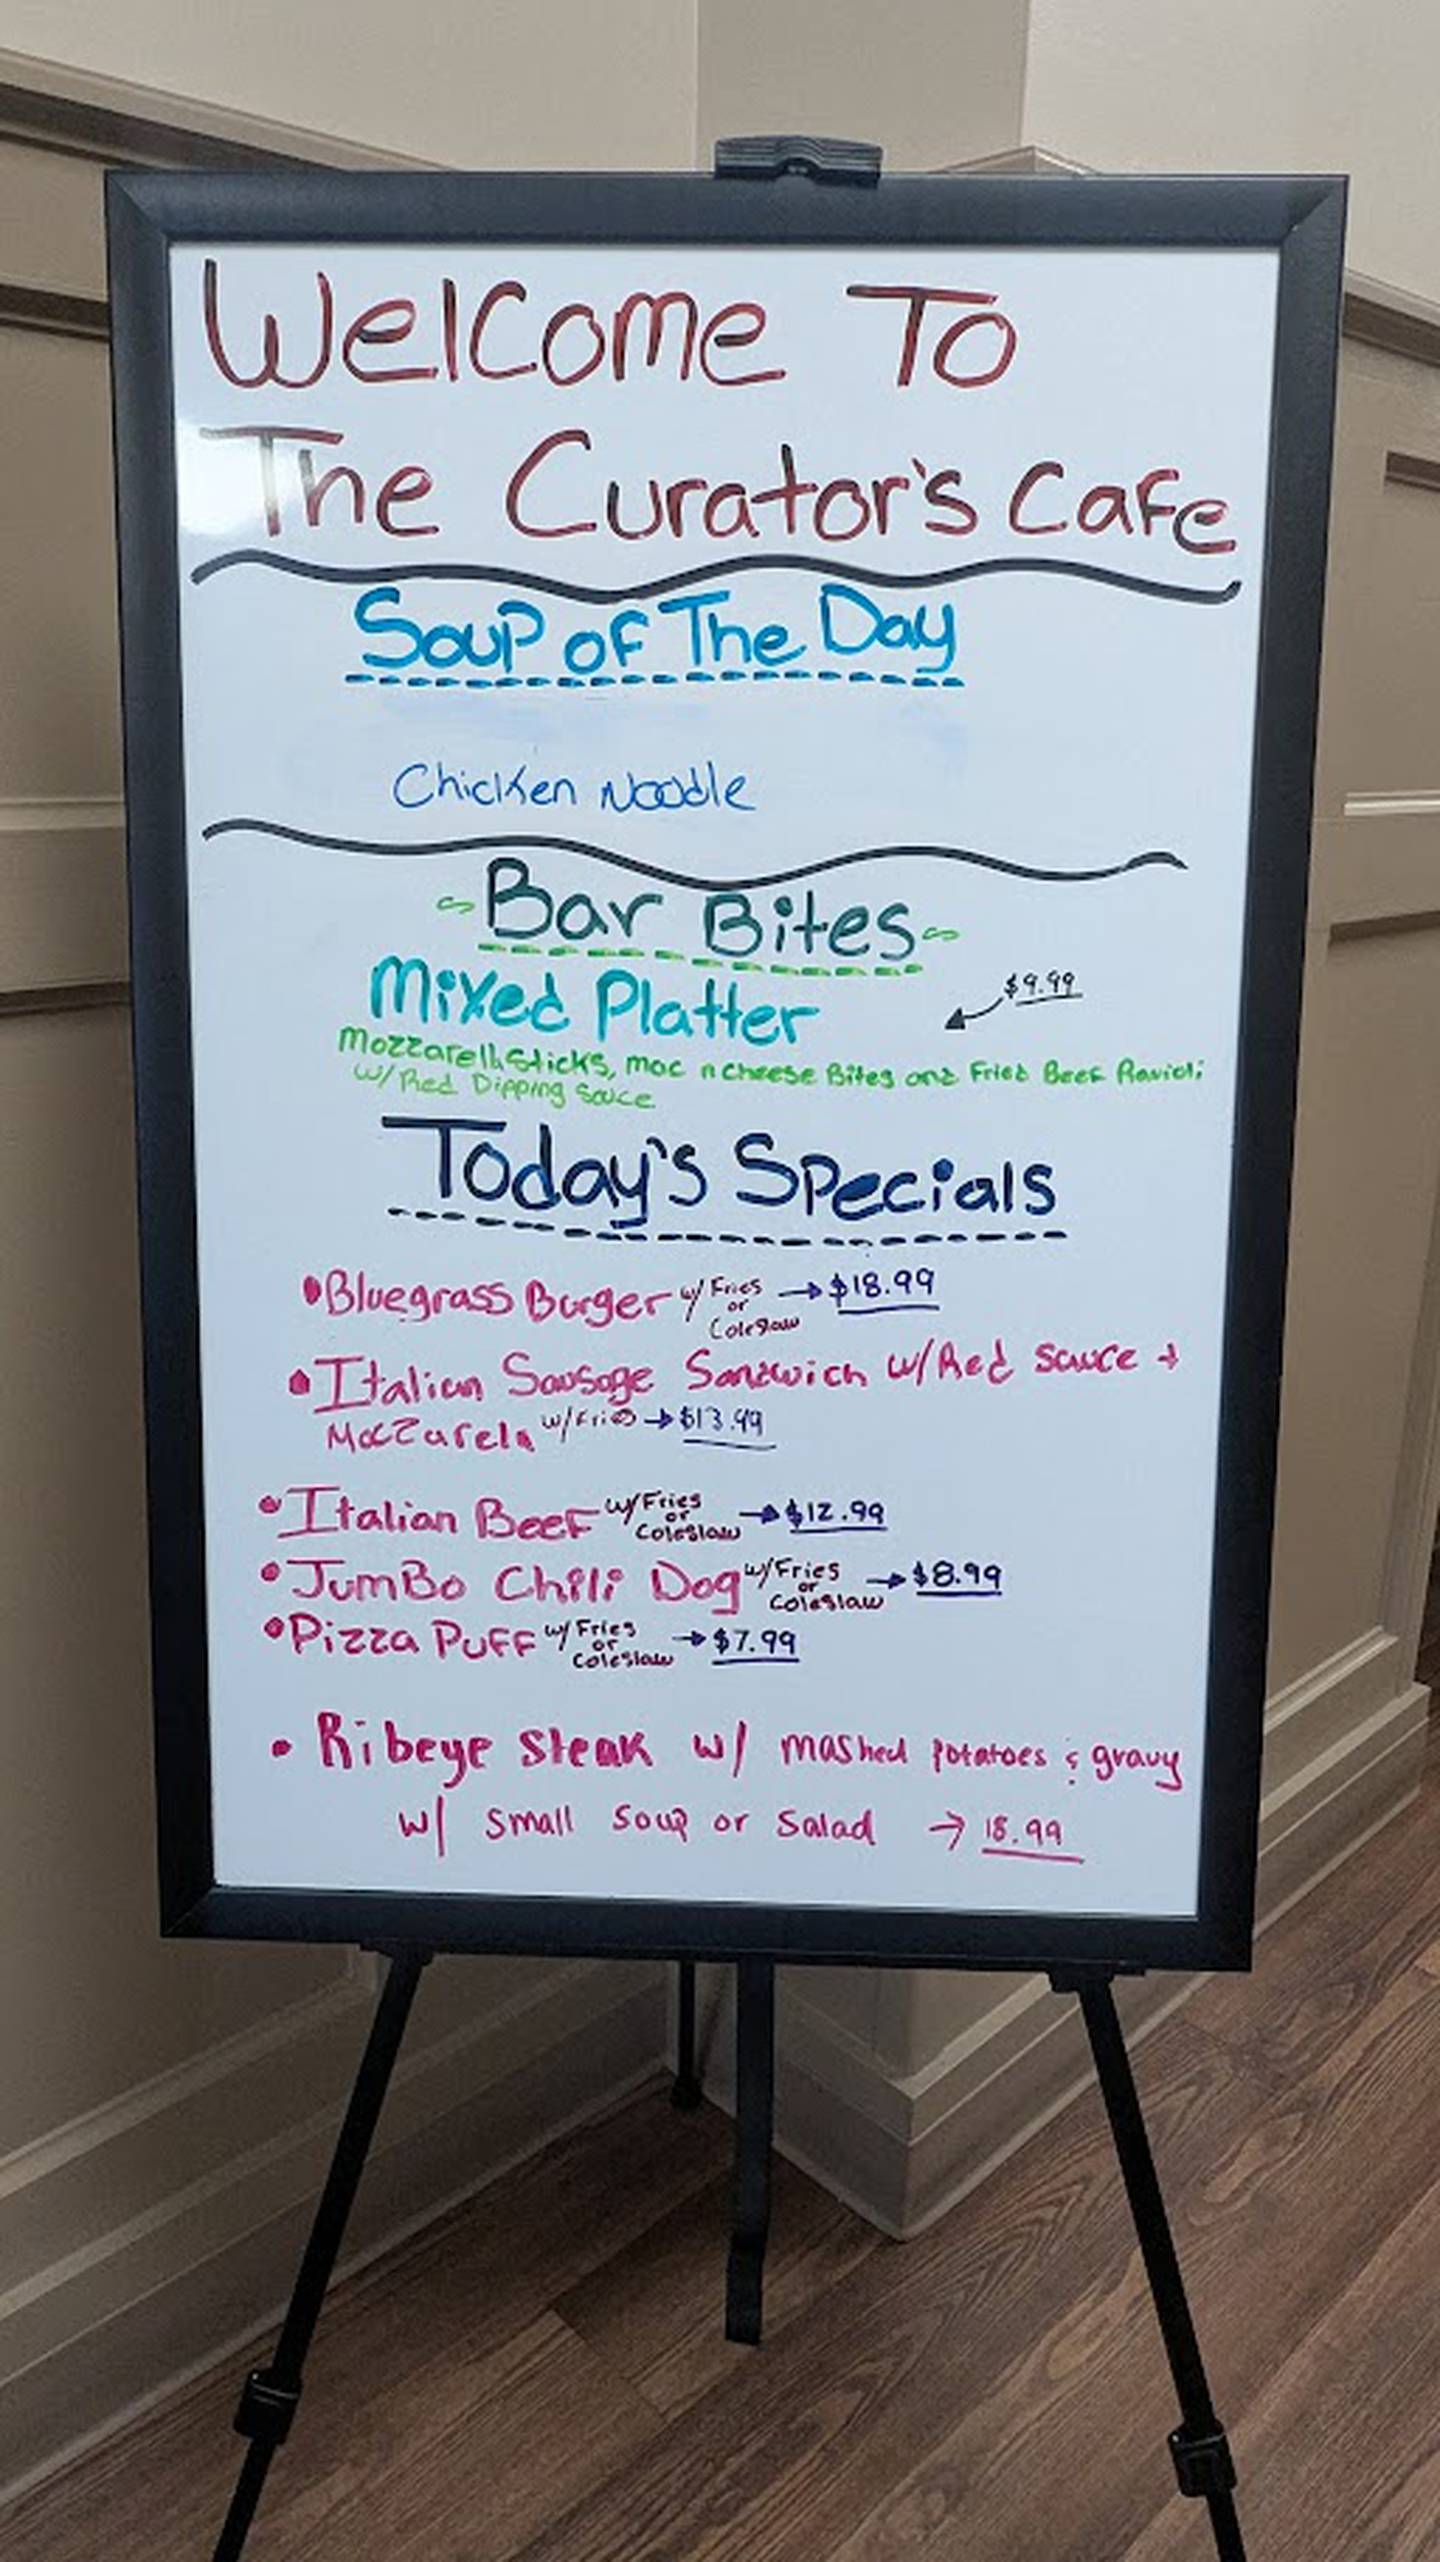 Welcome To
The Curator's Cafe
Soup of The Day
Chicken Noodle
~Bar Bites~
Mixed Platter
$9.99
Mozzarella Sticks, mac n cheese Bites and Fried Beef Ravioli
w/ Red Dipping Sauce
Today's Specials
• Bluegrass Burger w/ Fries or Coleslaw → $18.99
• Italian Sausage Sandwich w/ Red sauce +
Mozzarela w/ Fries → $13.99
• Italian Beef w/ Fries or Coleslaw → $12.99
• Jumbo Chili Dog w/ Fries or Coleslaw → $8.99
• Pizza Puff w/ Fries or Coleslaw → $7.99
• Ribeye steak w/ mashed potatoes & gravy
w/ small soup or salad → 18.99